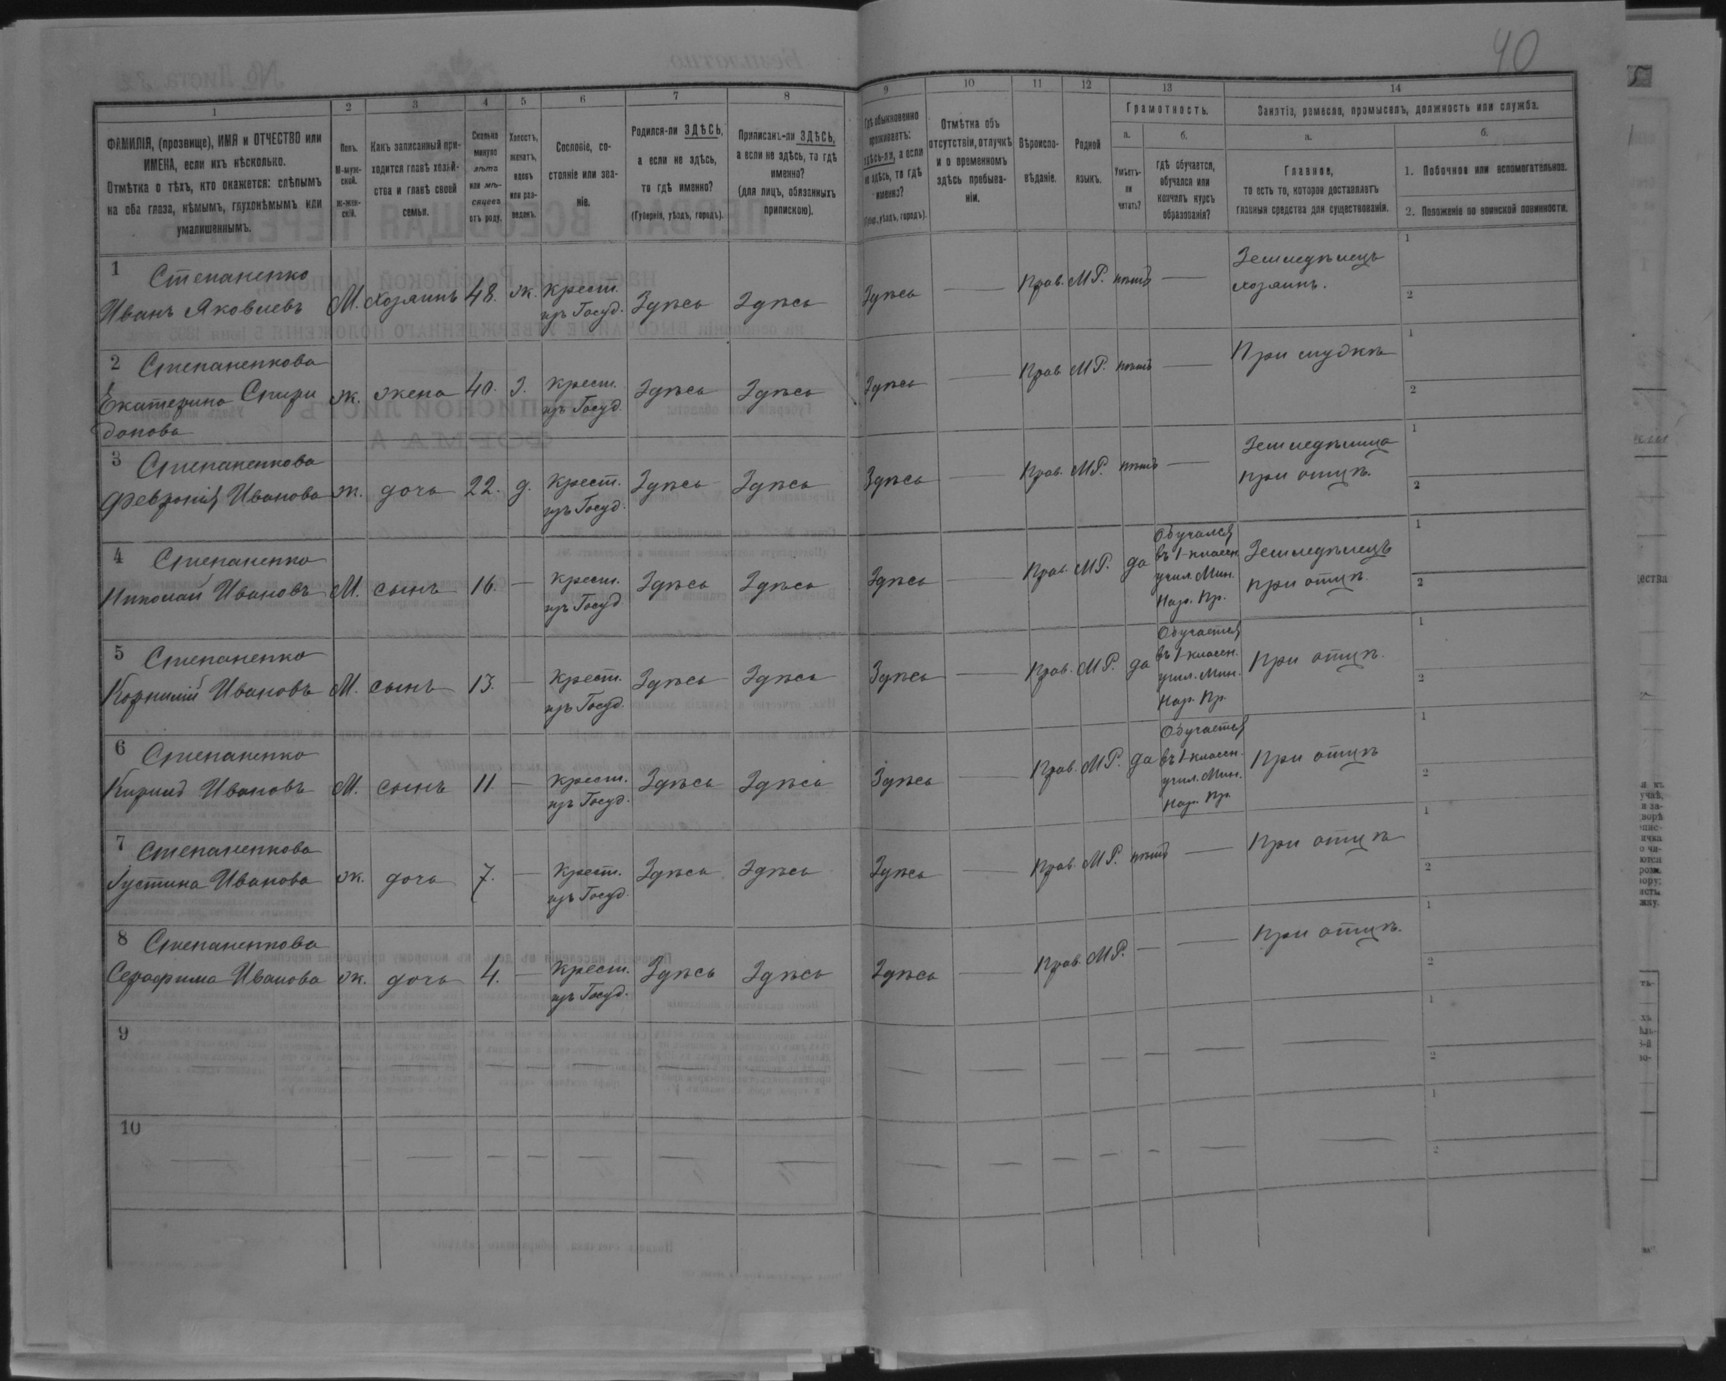 40
1 2 3 4 5 6 7 8 9 10 11 12 13 14
ФАМИЛІЯ, (прозвище), ИМЯ и ОТЧЕСТВО или
ИМЕНА, если ихъ нѣсколько.
Отмѣтка о тѣхъ, кто окажется: слѣпымъ
на оба глаза, нѣмымъ, глухонѣмымъ или
умалишеннымъ.
Полъ.
М-муж-
ской.
Ж-жен-
скій.
Какъ записанный при-
ходится главѣ хозяй-
ства и главѣ своей
семьи.
Сколько
минуло
лѣтъ
или мѣ-
сяцевъ
отъ роду.
Холостъ,
женатъ,
вдовъ
или раз-
веденъ.
Сословіе, со-
стояніе или зва-
ніе.
Родился-ли ЗДѢСЬ,
а если не здѣсь,
то гдѣ именно?
(Губернія, уѣздъ, городъ).
Приписанъ-ли ЗДѢСЬ,
а если не здѣсь, то гдѣ
именно?
(для лицъ, обязанныхъ
припискою).
Гдѣ обыкновенно
проживаетъ:
здѣсь-ли, а если
не здѣсь, то гдѣ
именно?
(Губер., уѣздъ, городъ).
Отмѣтка объ
отсутствіи, отлучкѣ
и о временномъ
здѣсь пребыва-
ніи.
Вѣроиспо-
вѣданіе.
Родной
языкъ.
Грамотность.
а.
Умѣетъ-
ли
читать?
б.
Гдѣ обучается,
обучался или
кончилъ курсъ
образованія?
Занятіе, ремесло, промыселъ, должность или служба.
а.
Главное,
то есть то, которое доставляетъ
главныя средства для существованія.
б.
1. Побочное или вспомогательное.
2. Положеніе по воинской повинности.
1 Степаненко
Иванъ Яковлевъ М. хозяинъ 48. ж. Крест. изъ Госуд. Здѣсь Здѣсь Здѣсь — Прав. МР. нѣтъ — Земледѣлецъ хозяинъ. 1 2
2 Степаненкова
Екатерина Спири
донова ж. жена 40. з. Крест. изъ Госуд. Здѣсь Здѣсь Здѣсь — Прав МР. нѣтъ — При мужѣ 1 2
3 Степаненкова
Февронія Иванова ж. дочь 22. д. Крест. изъ Госуд. Здѣсь Здѣсь Здѣсь — Прав. МР. нѣтъ — Земледѣлица при отцѣ. 1 2
4 Степаненко
Николай Ивановъ М. сынъ 16. — Крест. изъ Госуд. Здѣсь Здѣсь Здѣсь — Прав. МР. да Обучался въ 1-классн. учил. Мин. Нар. Пр. Земледѣлецъ при отцѣ. 1 2
5 Степаненко
Корнилій Ивановъ М. сынъ 13. — Крест. изъ Госуд. Здѣсь Здѣсь Здѣсь — Прав. МР. да Обучается въ 1-классн. учил. Мин. Нар. Пр. При отцѣ. 1 2
6 Степаненко
Кирилъ Ивановъ М. сынъ 11 — Крест. изъ Госуд. Здѣсь Здѣсь Здѣсь — Прав. МР. да Обучается въ 1-классн. учил. Мин. Нар. Пр. При отцѣ 1 2
7 Степаненкова
Іустина Иванова ж. дочь 7. — Крест. изъ Госуд. Здѣсь Здѣсь Здѣсь — Прав МР. нѣтъ — При отцѣ 1 2
8 Степаненкова
Серафима Иванова ж. дочь 4. — Крест. изъ Госуд. Здѣсь Здѣсь Здѣсь — Прав. МР. — — При отцѣ. 1 2
9 — — — — — — — — — — — — — — 1 2
10 — — — — — — — — — — — — — — 1 2